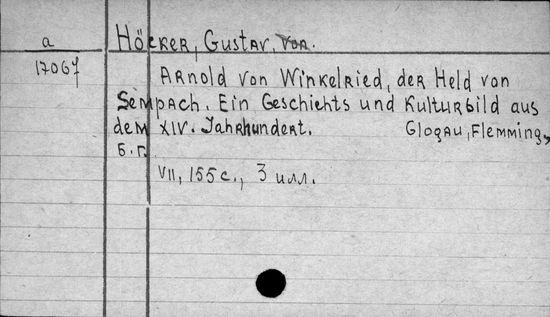 a
Höcker, Gustav, von.
17067
Arnold von Winkelried, der Held von
Sempach. Ein Geschichts und Kulturbild aus
dem XIV. Jahrhundert. Glogau, Flemming,
б. г.
VII, 155 с., 3 илл.